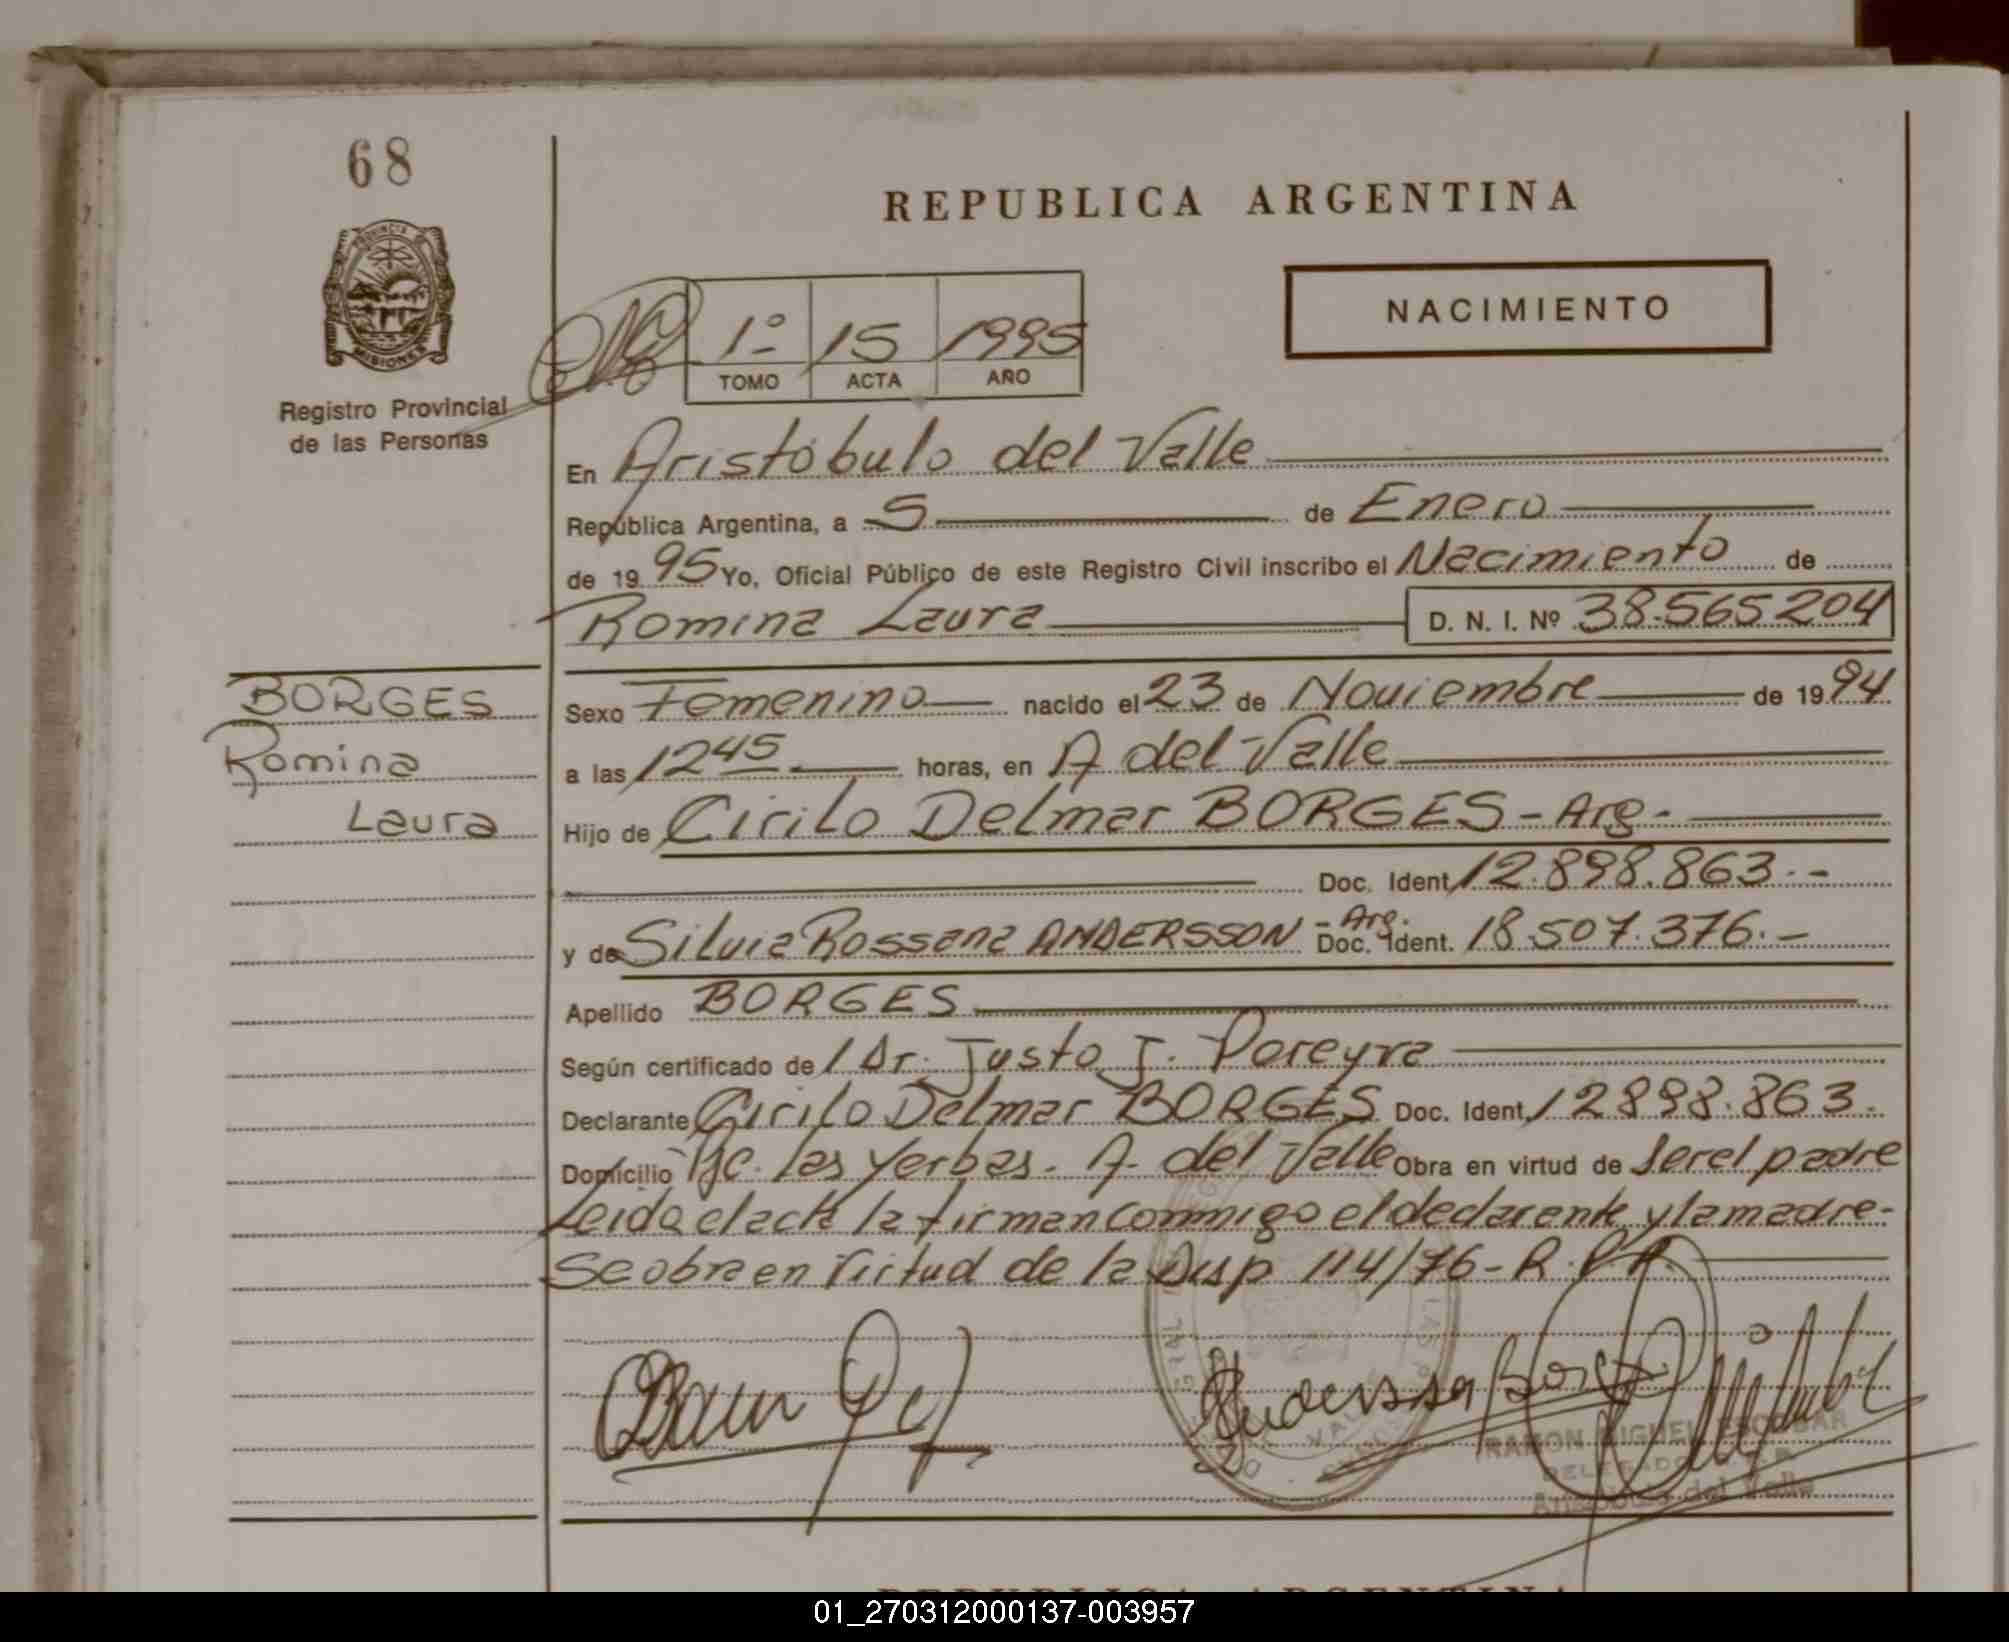 68
REPUBLICA ARGENTINA
PROVINCIA DE
MISIONES
NACIMIENTO
1º 15 1995
TOMO ACTA AÑO
Registro Provincial
de las Personas
En Aristóbulo del Valle
República Argentina, a 5 de Enero
de 1995 Yo, Oficial Público de este Registro Civil inscribo el Nacimiento de
Romina Laura D. N. I. Nº 38.565204
BORGES
Romina
Laura
Sexo Femenino nacido el 23 de Noviembre de 1994
a las 12 45 horas, en A del Valle
Hijo de Cirilo Delmar BORGES - Arg -
Doc. Ident 12.898.863.-
y de Silvia Rossana ANDERSSON - Arg. Doc. Ident. 18.507.376.-
Apellido BORGES
Según certificado de / Dr. Justo J. Pereyra
Declarante Cirilo Delmar BORGES Doc. Ident. 12898.863.
Domicilio las Yerbas. A. del Valle Obra en virtud de ser el padre
Leida el acta la firman conmigo el declarante y la madre.-
Se obra en Virtud de la Disp 114/76 - R.P.P.
RAMON MIGUEL ESCOBAR
DELEGADO
Aristóbulo del Valle
REPUBLICA ARGENTINA
01_270312000137-003957